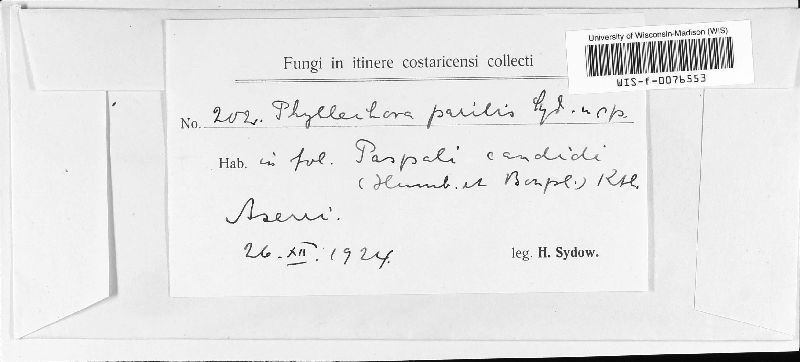 University of Wisconsin-Madison (WIS)
WIS-f-0076553
Fungi in itinere costaricensi collecti
No. 202. Phyllachora parilis Syd. n. sp.
Hab. in fol. Paspali candidi
(Humb. et Bonpl.) Kth.
Aserri.
26. XII. 1924.
leg. H. Sydow.